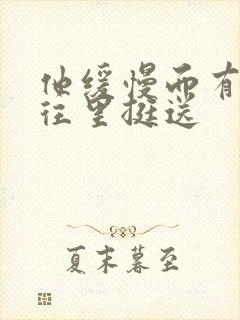 他缓慢而有
往里挺送
夏末暮至